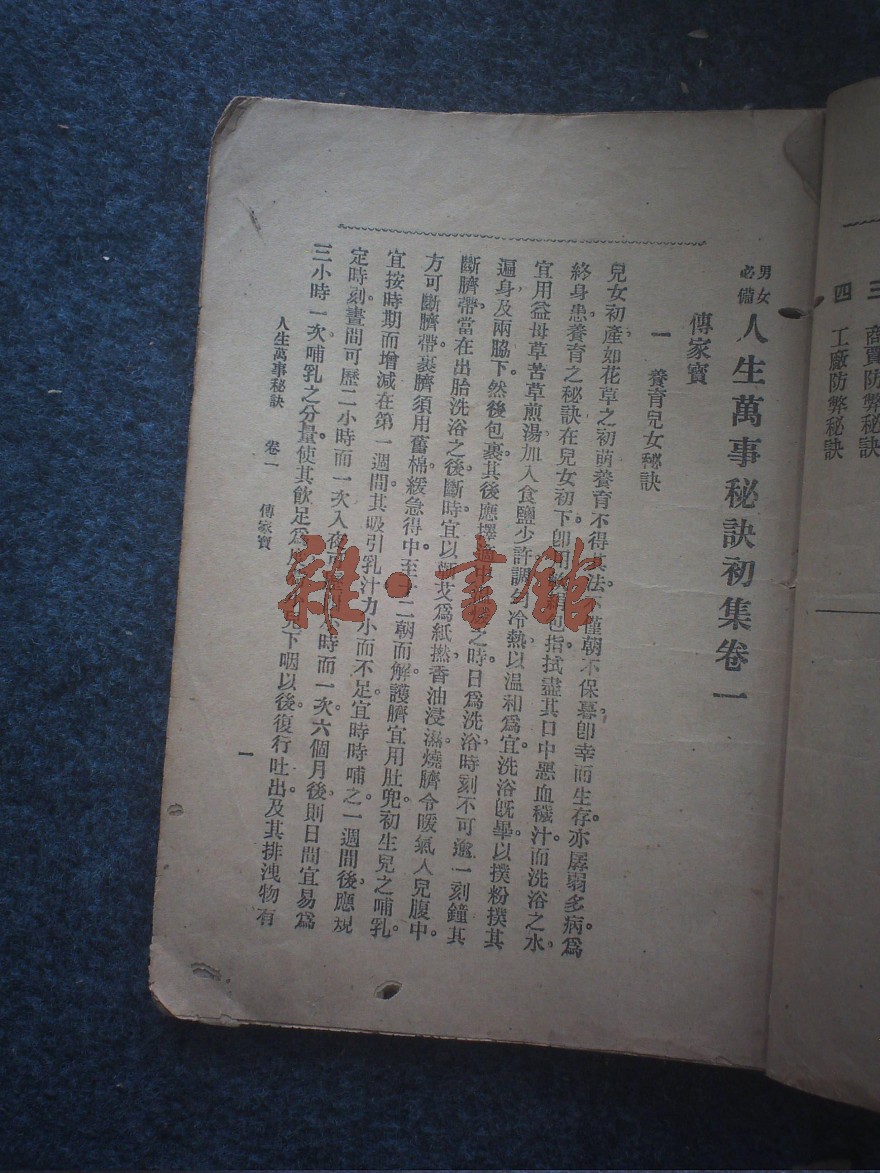 三 商賈防弊秘訣
四 工廠防弊秘訣
男女必備 人生萬事秘訣初集卷一
傳家寶
一 養育兒女秘訣
兒女初產如花草之初萌養育不得其法不僅朝不保暮卽幸而生存亦孱弱多病爲
終身患養育之秘訣在兒女初下卽用 包指拭盡其口中惡血穢汁而洗浴之水
宜用益母草苦草煎湯加入食鹽少許調勻冷熱以温和爲宜洗浴旣畢以撲粉撲其
遍身及兩脇下。然後包裹其後應擇 之時日爲洗浴時刻不可逾一刻鐘其
斷臍帶當在出胎洗浴之後斷時宜以 艾爲紙撚香油浸濕燒臍令暖氣人兒腹中。
方可斷臍帶裹臍須用舊棉緩急得中至十二朝而解護臍宜用肚兜初生兒之哺乳
宜按時期而增減在第一週間其吸引乳汁力小而不足宜時時哺之一週間後應規
定時刻晝間可歷二小時而一次入夜 時而一次六個月後則日間宜易爲
三小時一次哺乳之分量使其飲足爲 兒下咽以後復行吐出及其排洩物有
人生萬事秘訣 卷一 傳家寶 一
雜·書館